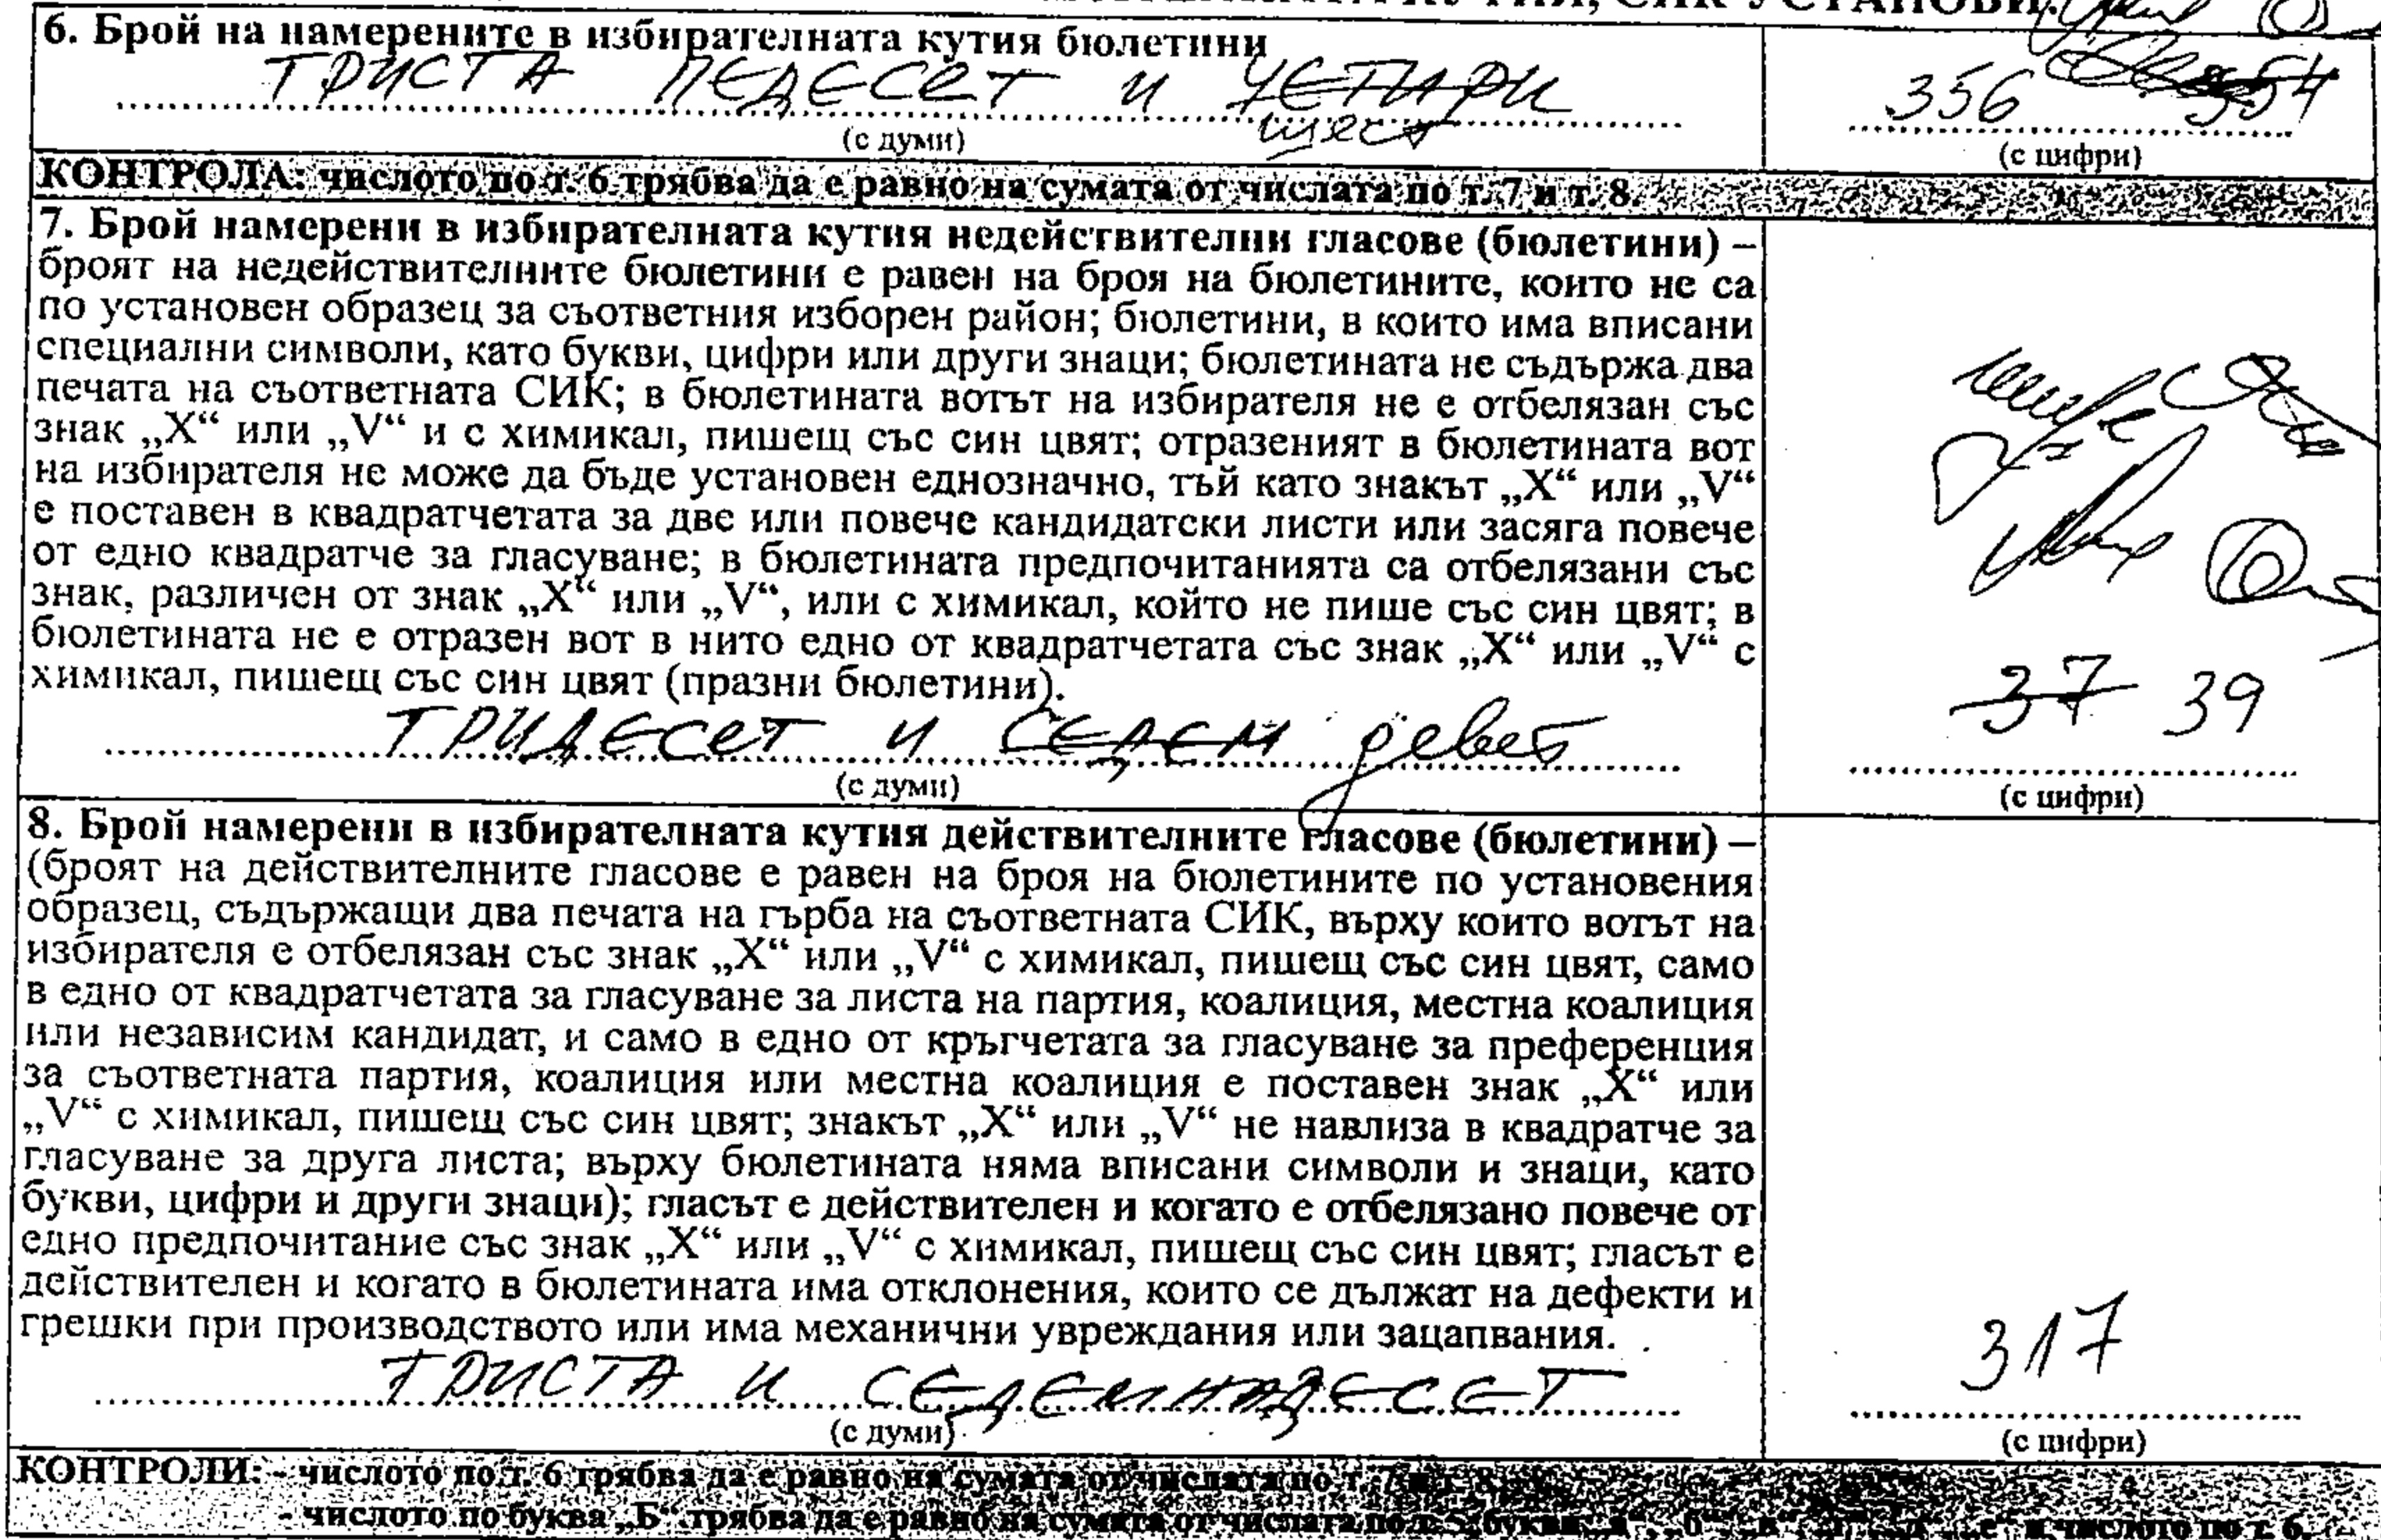 СИК УСТАНОВИ:
6. Брой на намерените в избирателната кутия бюлетини
ТРИСТА ПЕДЕСЕТ И ЧЕТИРИ
шест
356 354
(с думи)
(с цифри)
КОНТРОЛА: числото по т. 6 трябва да е равно на сумата от числата по т. 7 и т. 8.
7. Брой намерени в избирателната кутия недействителни гласове (бюлетини) –
броят на недействителните бюлетини е равен на броя на бюлетините, които не са
по установен образец за съответния изборен район; бюлетини, в които има вписани
специални символи, като букви, цифри или други знаци; бюлетината не съдържа два
печата на съответната СИК; в бюлетината вотът на избирателя не е отбелязан със
знак „X“ или „V“ и с химикал, пишещ със син цвят; отразеният в бюлетината вот
на избирателя не може да бъде установен еднозначно, тъй като знакът „X“ или „V“
е поставен в квадратчетата за две или повече кандидатски листи или засяга повече
от едно квадратче за гласуване; в бюлетината предпочитанията са отбелязани със
знак, различен от знак „X“ или „V“, или с химикал, който не пише със син цвят; в
бюлетината не е отразен вот в нито едно от квадратчетата със знак „X“ или „V“ с
химикал, пишещ със син цвят (празни бюлетини).
37 39
ТРИДЕСЕТ И СЕДЕМ девет
(с думи)
(с цифри)
8. Брой намерени в избирателната кутия действителните гласове (бюлетини) –
(броят на действителните гласове е равен на броя на бюлетините по установения
образец, съдържащи два печата на гърба на съответната СИК, върху които вотът на
избирателя е отбелязан със знак „X“ или „V“ с химикал, пишещ със син цвят, само
в едно от квадратчетата за гласуване за листа на партия, коалиция, местна коалиция
или независим кандидат, и само в едно от кръгчетата за гласуване за преференция
за съответната партия, коалиция или местна коалиция е поставен знак „X“ или
„V“ с химикал, пишещ със син цвят; знакът „X“ или „V“ не навлиза в квадратче за
гласуване за друга листа; върху бюлетината няма вписани символи и знаци, като
букви, цифри и други знаци); гласът е действителен и когато е отбелязано повече от
едно предпочитание със знак „X“ или „V“ с химикал, пишещ със син цвят; гласът е
действителен и когато в бюлетината има отклонения, които се дължат на дефекти и
грешки при производството или има механични увреждания или зацапвания.
317
ТРИСТА И СЕДЕМНАДЕСЕТ
(с думи)
(с цифри)
КОНТРОЛИ: - числото по т. 6 трябва да е равно на сумата от числата по т. 7 и т. 8.
- числото по буква „Б“ трябва да е равно на сумата от числата по т. 5, буква „а“, „б“, „в“, „г“, „д“, „е“ и числото по т. 6.